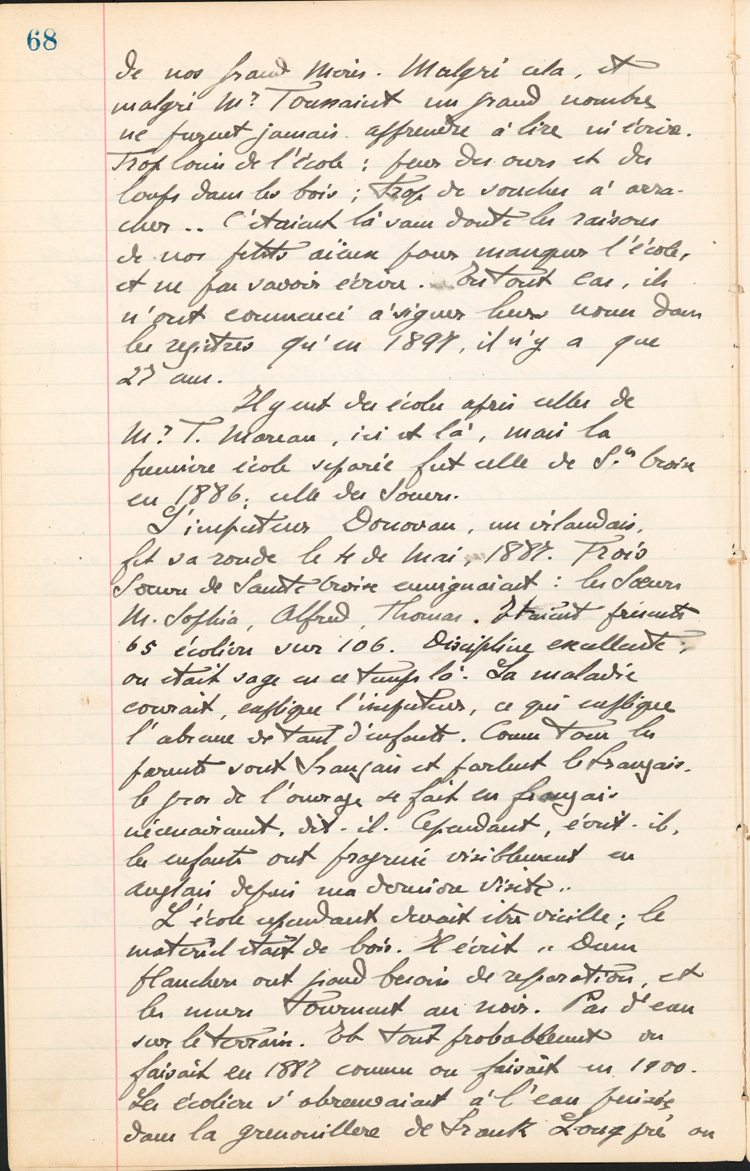 68
de nos grand Mères. Malgré cela, et
malgré Mr Toussaint un grand nombre
ne furent jamais apprendre à lire ni écrire.
Trop loin de l'école ; peur des ours et des
loups dans les bois ; Trop de souches à arra-
cher .. C'étaient là sans doute les raisons
de nos petits aïeux pour manquer l'école,
et ne pas savoir écrire. En tout cas, ils
n'ont commencé à signer leurs noms dans
les registres qu'en 1897, il n'y a que
27 ans.
Il y eut des écoles après celles de
Mr T. Moreau, ici et là, mais la
première école séparée fut celle de Ste Croix
en 1886; celle des Soeurs.
L'inspecteur Donovan, un irlandais,
fit sa ronde le 4 de Mai, 1887. Trois
Soeurs de Sainte Croix enseignaient : les Soeurs
M. Sophia, Alfred, Thomas. Etaient présents
65 écoliers sur 106. Discipline excellente;
on était sage en ce temps là. La maladie
courait, explique l'inspecteur, ce qui explique
l'absence de tant d'enfants. Comme tous les
parents sont français et parlent le français,
le gros de l'ouvrage se fait en français
nécessairement, dit-il. Cependant, écrit-il,
les enfants ont progressé visiblement en
anglais depuis ma dernière visite..
L'école cependant devait être vieille; le
matériel était de bois. Il écrit " Deux
planchers ont grand besoin de reparation, et
les murs tournent au noir. Pas d'eau
sur le terrain. Et tout probablement on
faisait en 1887 comme on faisait en 1900.
Les écoliers s'abreuvaient à l'eau puisée
dans la grenouillere de Frank Long prés ou